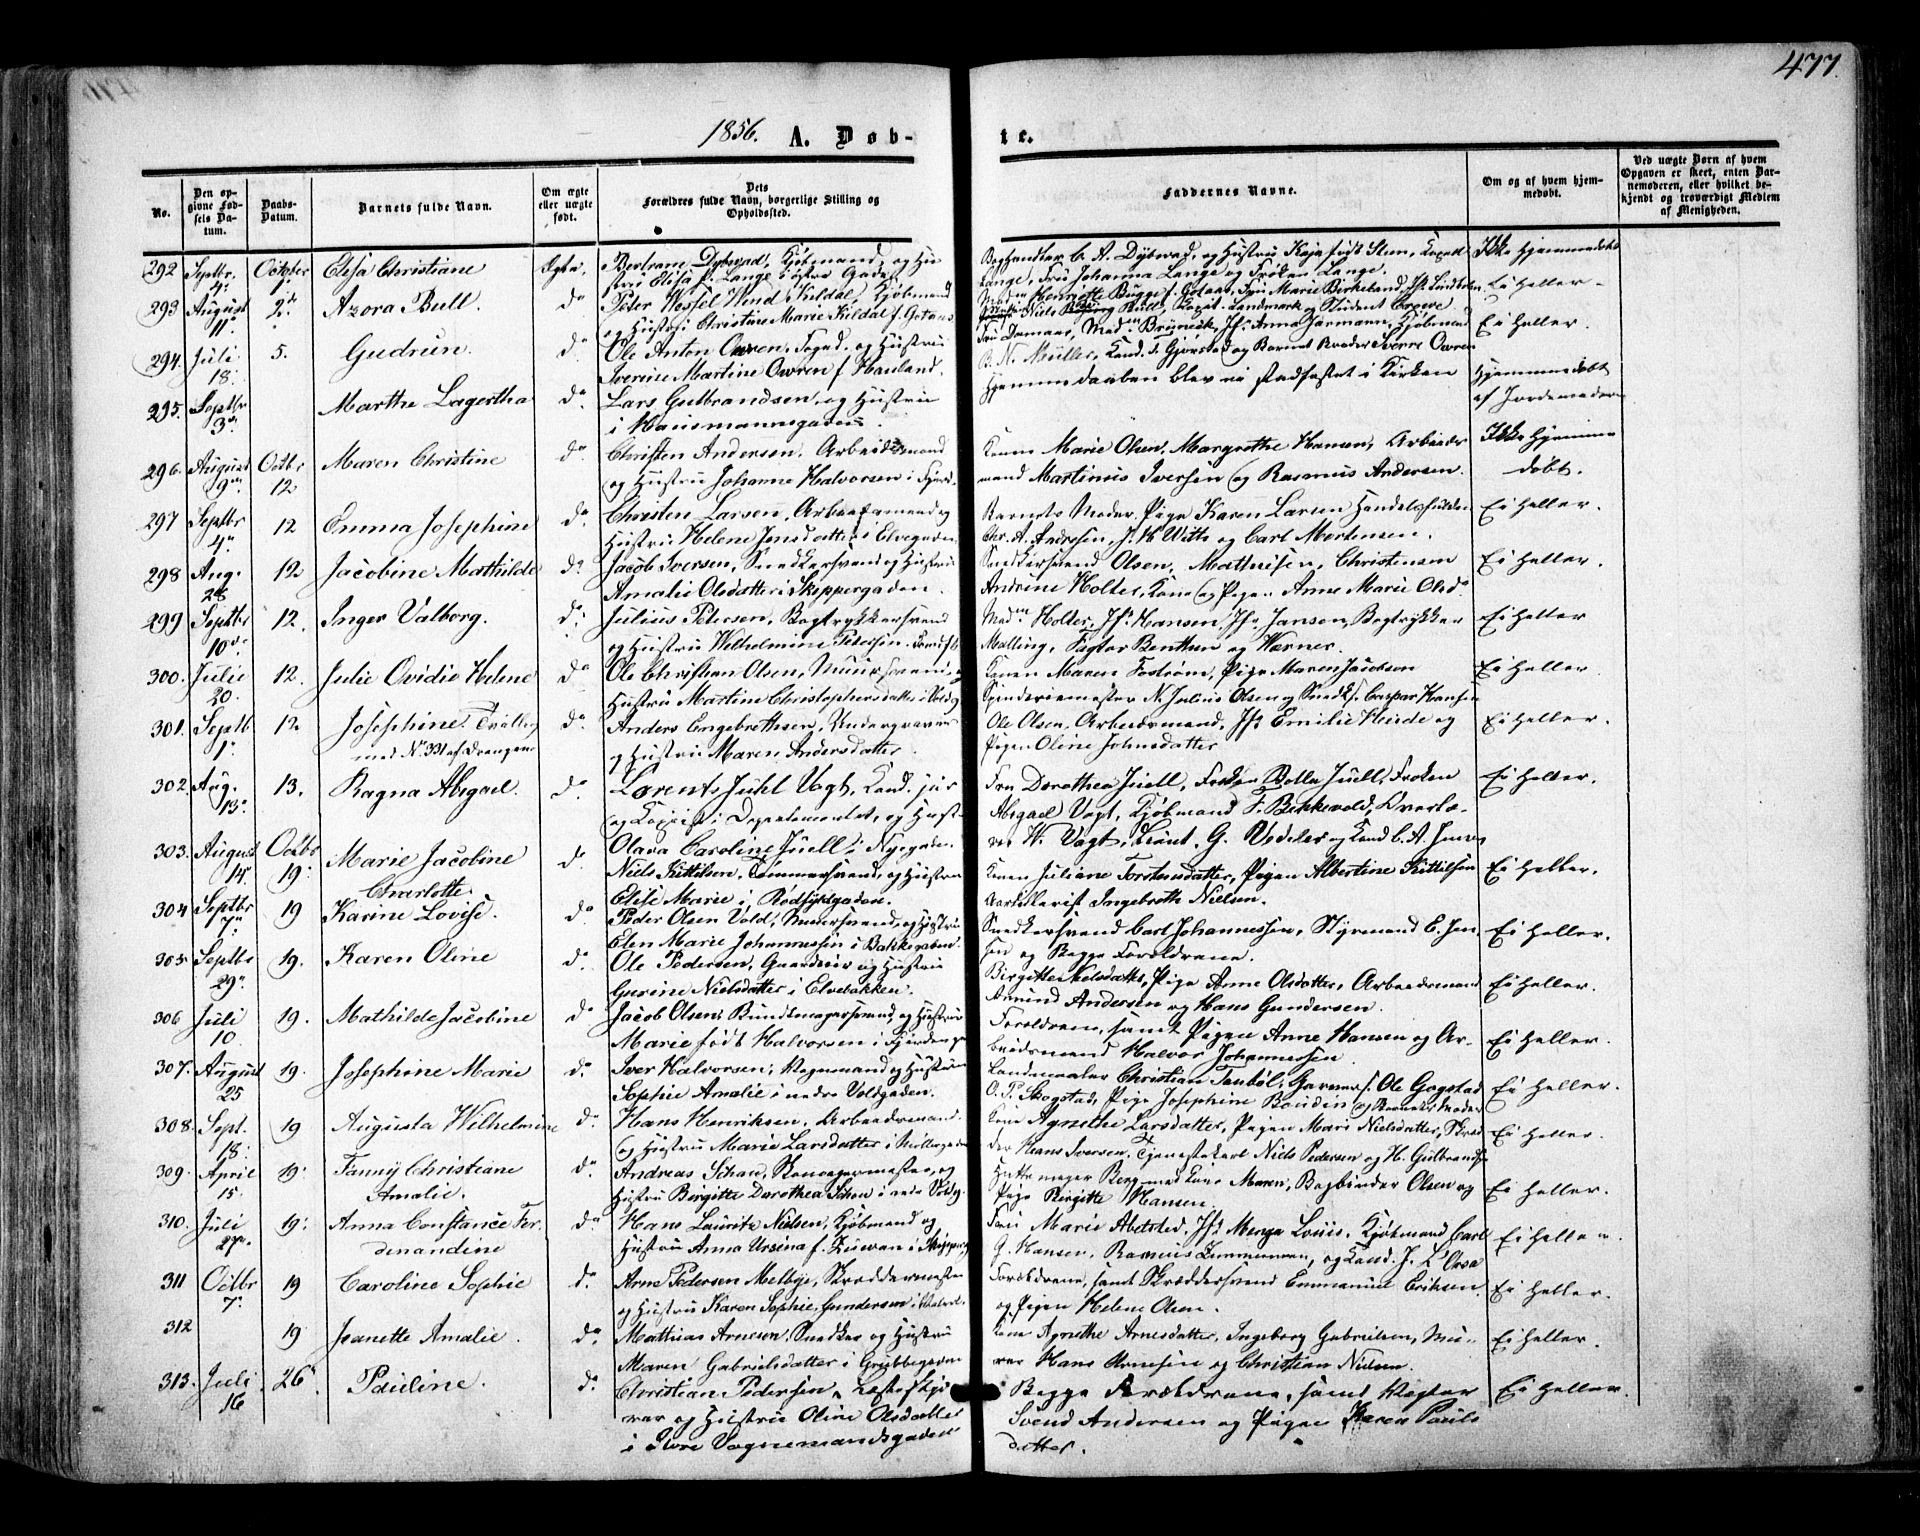 477.
1856. A. Døb-
te.
No.
Den opgivne Fødsels Datum.
Daabs-Datum.
Barnets fulde Navn.
Om ægte eller uægte født.
Dets Forældres fulde Navn, borgerlige Stilling og Opholdsted.
Faddernes Navne.
Om og af hvem hjemmedøbt.
Ved uægte Børn af hvem Opgaven er skeet, enten Barnemoderen, eller hvilket bekjendt og troværdigt Medlem af Menigheden.
292 Septbr 4. October 1. Elisa Christiane Ægte.
Bertrane Dybwad, Kjøbmand, og Hu
stru Elisa f. Lange i østre Gade
Boghandler C. A. Dybwad, og Hustru Kaja født Steen,
Lange, Fru Johanna Lange og Frøken Lange.
Ikke Hjemmedøbt
293 August 11. 2d Azora Bull. do
Peder Wessel Wind Kildal, Kjøbmand
og Hustru Christine Marie Kildal f. Gotaas
Madm Henriette Bugge f. Gotaas, Fru Marie Birkeland,
Niels Bull, Kapt. Landmark og Student Greve
Ei Heller.
294. Juli 18. 5. Gudrun. do
Ole Anton Owren, Foged, og Hustru
Iverine Martine Owren f. Hauland.
Fru Damaas, Madm Brynech, Jfr Anna Jarmann, Kjøbmand
B. N. Müller, Kand. T. Gjørstad og Barnets Broder Sverre Owren
Ei Heller.
295. Septbr 3. Marthe Lagertha do
Lars Gulbrandsen, og Hustru
i Hausmannsgaden.
Hjemmedaaben blev ei stadfæstet i Kirken
Hjemmedøbt
af Jordemoderen
296. August 9. Octbr 12 Maren Christine do
Christen Andersen, Arbeidsmand
og Hustru Johanne Halvorsen i
Konen Marie Olsen, Margrethe Hansen, Arbeids
mand Martinus Iversen og Rasmus Andersen.
Ikke Hjemme
døbt.
297 Septbr 4. 12 Emma Josephine do
Christen Larsen, Arbeidsmand og
Hustru Helene Jensdatter i Elvegaden
Barnets Moder, Pige Karen Larsen Handelsfuldm
Chr. A. Andresen, J. H. Witte og Carl Mortensen.
Ei Heller.
298 Aug. 28 12 Jacobine Mathilde do
Jacob Iversen, Snedkersvend og Hustru
Amalie Olsdatter i Skippergaden.
Snedkersvend Olsen, Mathisen, Christensen
Andrine Holter, Kone og Pigen Anne Marie Olsd.
Ei Heller.
299 Septbr 10. 12. Inger Valborg. do
Julius Petersen, Bogtrykkersvend
og Hustru Wilhelmine Petersen.
Madm Holter, Jfr Hansen, Jfr Jansen, Bogtrykker
Malling, Fagtor Benthen og Werner.
Ei Heller
300. Julie 20. 12. Julie Ovidie Helene do
Ole Christian Olsen, Muursvend, og
Hustru Martine Christophersdatter i
Konen Maren Fostrøm, Pige Maren Jacobsen
Spinderiemester N. Julius Olsen og Snedk. Caspar Hansen
Ei Heller
301. Septb 1. 12 Josephine. Tvilling
med No 331 af Drengene do
Anders Engebrethsen, Undergraver
og Hustru Maren Andersdatter.
Ole Olsen, Arbeidsmand, Jfr Emilie Heide og
Pigen Oline Johnsdatter
Ei Heller.
302. Aug. 13. 13. Ragna Abigael. do
Lorents Juhl Vogt, Kand. jur
og Kopist i Departementet, og Hust.
Olava Caroline Juell i Nygaden.
Fru Dorothea Juell, Frøken Bolla Juell, Frøken
Abigael Vogt, Kjøbmand F. Bekkevold, Overlæ-
rer H. Vogt, Lieut. G. Vedeler og Kand C. A. Jensen
Ei Heller.
303. August 14. Octbr 19. Marie Jacobine
Charlotte. do
Niels Kittilsen, Tømmersvend, og Hustru
Elise Marie i Rødfyldgaden.
Konen Juliane Torstensdatter, Pigen Albertine Kittilsen
Artillerist Ingebreth Nielsen.
Ei Heller.
304 Septbr 7. 19 Karine Lovise. do
Peder Olsen Vold, Murersvend, og Hustru
Elen Marie Johannessen i Bakkegaden.
Snedkersvend Carl Johannessen, Styrmand E. Jen
sen og Begge Forældrene.
Ei Heller.
305 Septbr 29. 19. Karen Oline do
Ole Pedersen, Gaardeier og Hustru
Gurine Nielsdatter i Elvebakken.
Birgitte Nelsdatter, Pige Anne Olsdatter, Arbeidsmand
Amund Andersen og Hans Gundersen.
Ei Heller.
306 Juli 10. 19. Mathilde Jacobine do
Jacob Olsen, Bundtmagersvend, og Hustru
Marie født Halvorsen i Fjerdingen
Forældrene, samt Pigen Anne Hansen og Ar-
beidsmand Halvor Johannessen
Ei Heller.
307. August 25 19. Josephine Marie do
Iver Halvorsen, Vognmand og Hustru
Sophie Amalie i nedre Voldgaden.
Landmaaler Christian Tanbøl, Garver s. Ole Gogstad
O. P. Skogstad, Pige Josephine Boudin og Barnets Moder
Ei Heller.
308. Sept. 18. 19 Augusta Wilhelmine do
Hans Henriksen, Arbeidsmand.
og Hustru Marie Larsdatter i Møllergaden
Kone Agnethe Larsdatter, Pigen Mari Nielsdatter, Skræd
der Hans Iversen, Tjenestekarl Niels Pedersen og H. Gulbrands
Ei Heller.
309. April 15. 19. Fanny Christiane
Amalie. do
Andreas Schau, Kanongermester, og
Hustru Birgitte Dorothea Schou i nedre Voldg.
Huttemager Berg med Kone Maren, Bogbinder Olsen og
Pige Birgitte Hansen.
Ei Heller.
310. Juli 27. 19. Anna Constance Fer-
dinandine do
Hans Lauritz Nielsen, Kjøbmand og
Hustru Anna Ursina f. i Skipperg.
Fru Marie Abelsted, Jfr Menga Louis, Kjøbmand Carl
G. Hansen, Rasmus Zimmerman, og Kand. J. L'Orsa
Ei Heller.
311 Octbr 7. 19 Caroline Sophie do
Arne Pedersen Melbye, Skræddermester
og Hustru Karen Sophie Gundersen i
Forældrene, samt Skræddersvend Emmanuel Eriksen
og Pigen Helene Olsen.
Ei Heller.
312 19 Jeanette Amalie. do
Mathias Arnesen, Snedker og Hustru
Maren Gabrielsdatter i Grubbegaden
Kone Agnethe Arnesdatter, Ingeborg Gabrielsen, Mu-
rer Hans Arnesen og Christian Nielsen.
Ei Heller.
313. Juli 16 26 Pauline. do
Christian Pedersen, Læstefskjø
rer og Hustru Oline Olsdatter
i Store Vognemandsgaden
Begge Forældrene, samt Vægter
Svend Andersen og Pigen Karen Pauls
datter.
Ei Heller.